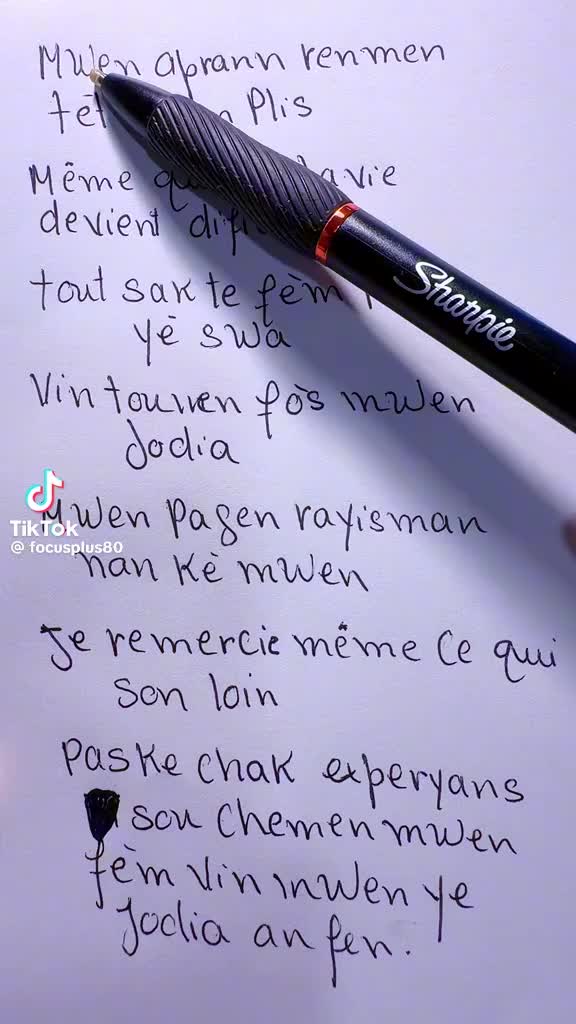 Mwen aprann renmen
plis
Même lavie
devient
tout sak te fèm
yè swa
Vin tounen fòs mwen
Jodia
Mwen pagen rayisman
nan kè mwen
Je remercie même ce qui
son loin
Paske chak experyans
sou chemen mwen
fèm vin mwen ye
Jodia an fen.
Sharpie
TikTok
@focusplus80